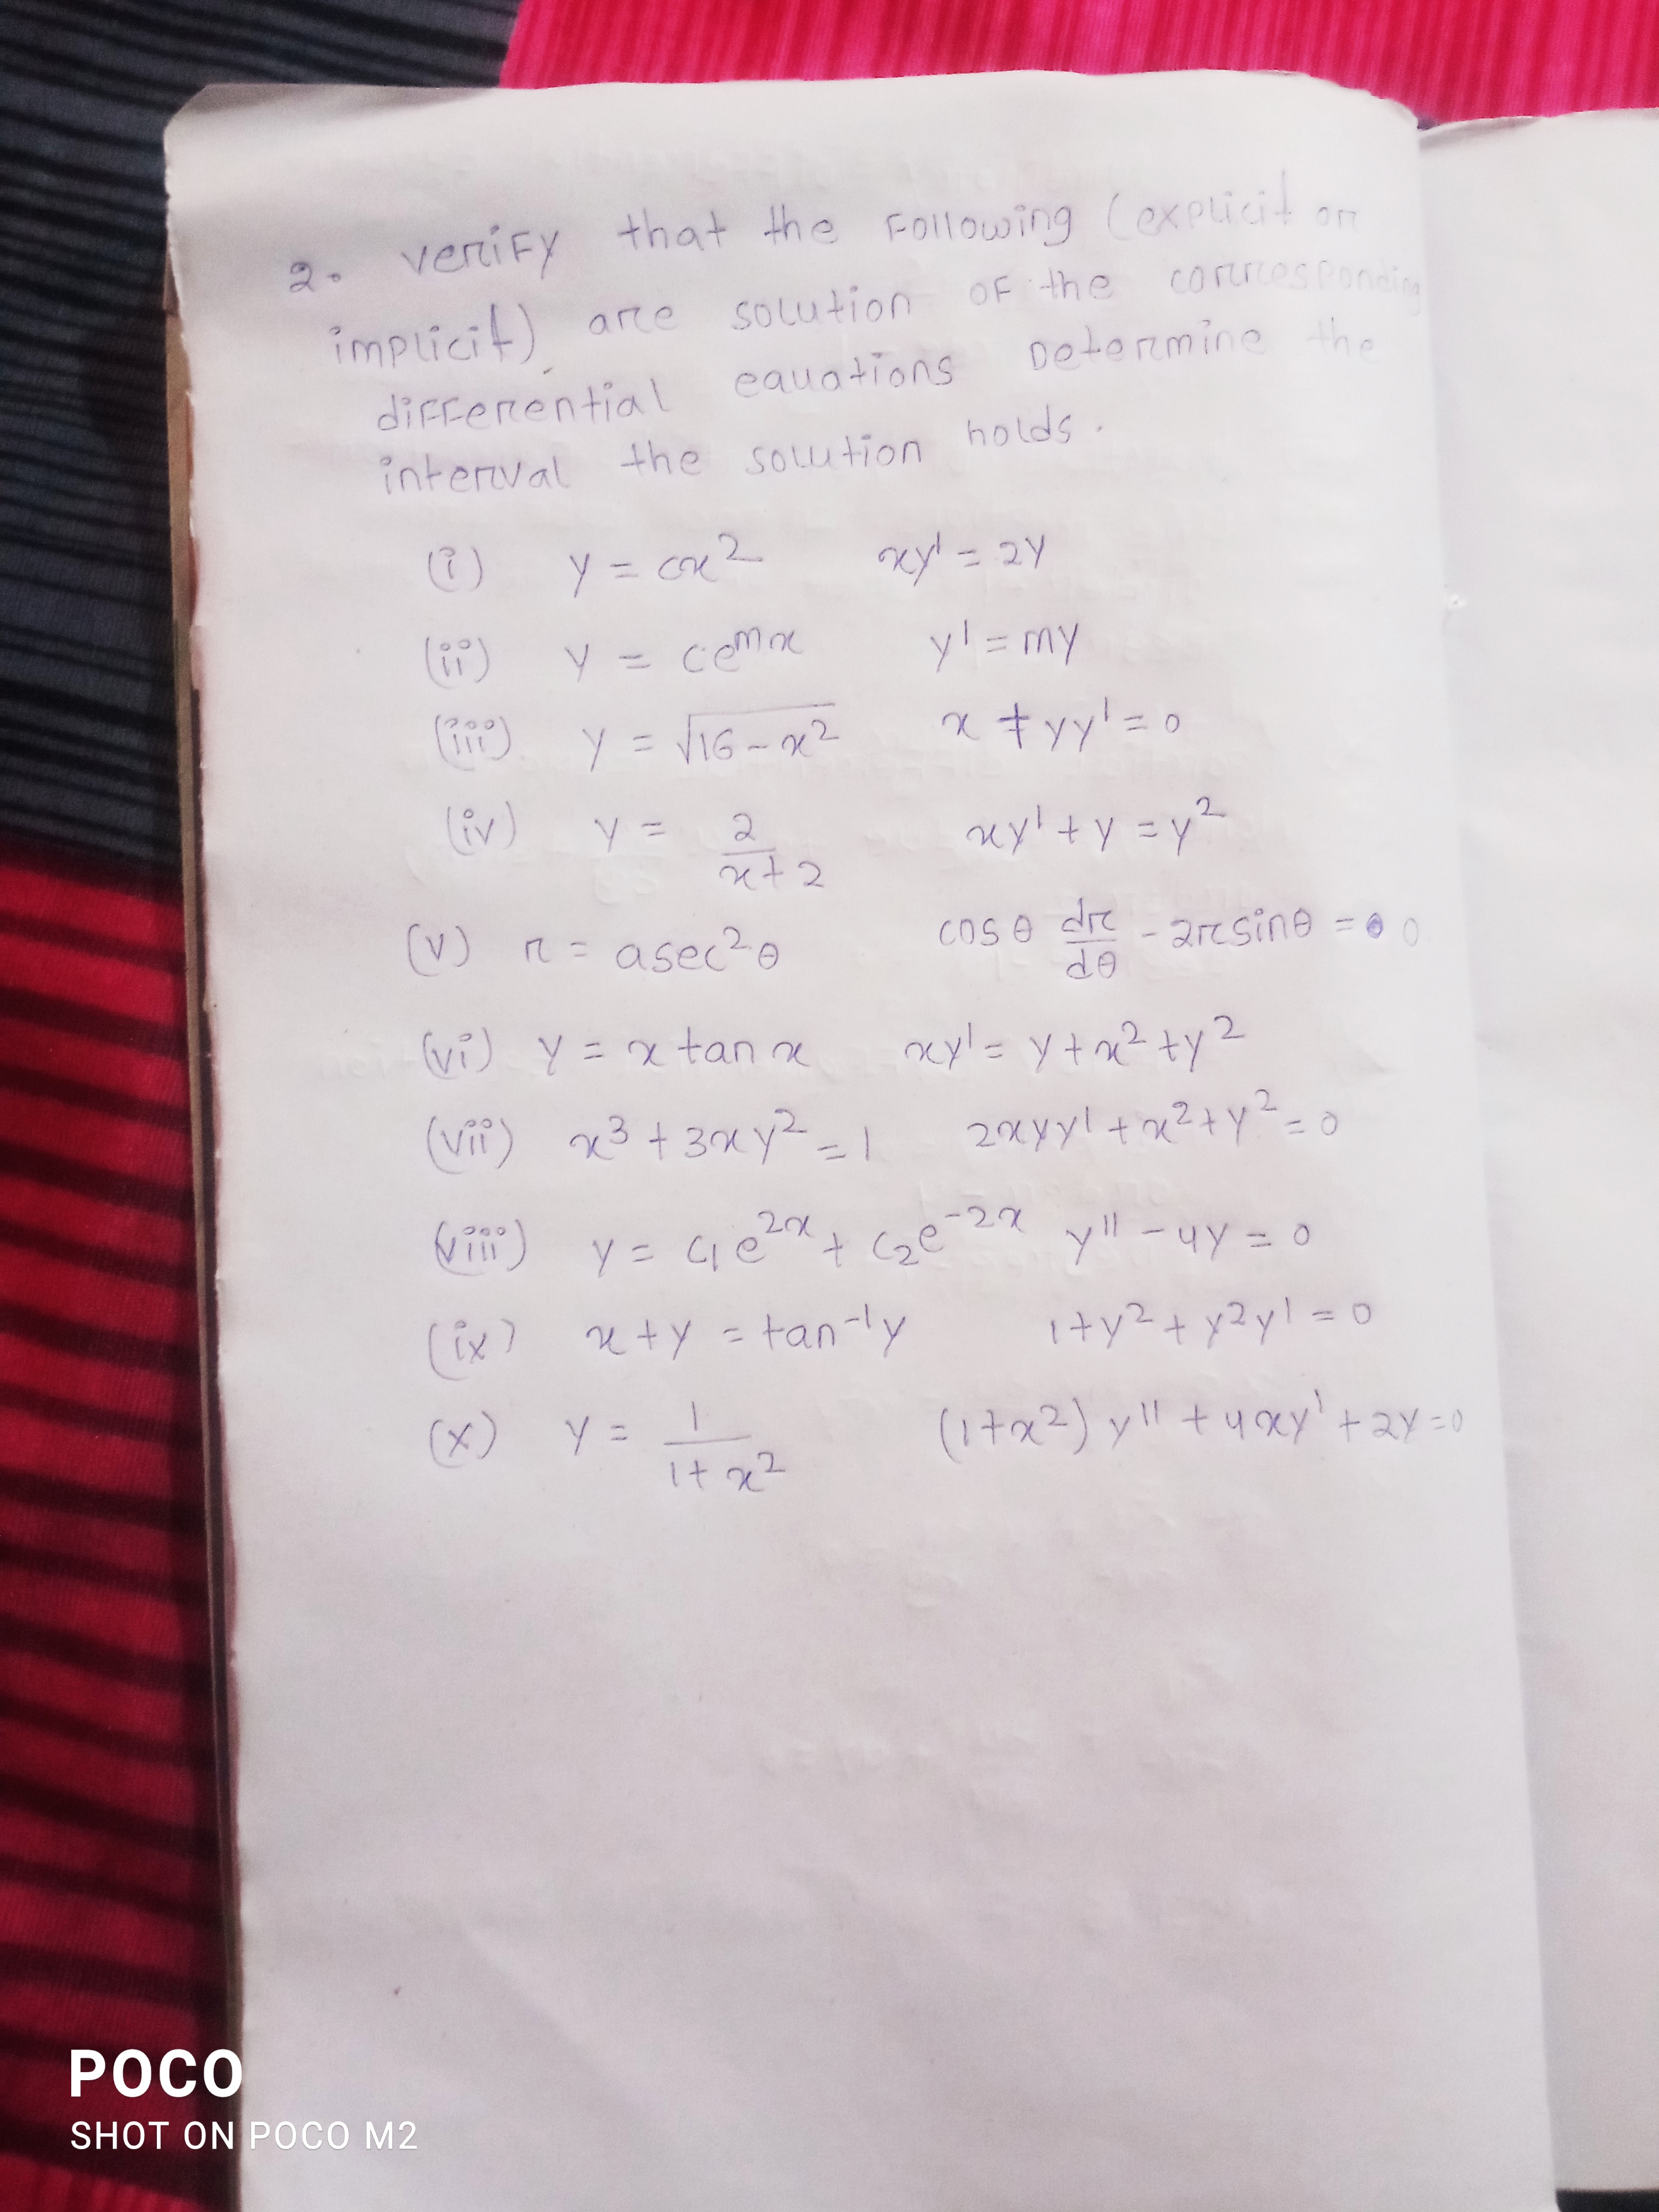 2. verify that the Following (explicit or
implicit) are solution of the corresponding
differential eauations Determine the
interval the solution holds.
(i) y = cx² xy' = 2y
(ii) y = ce^mx y' = my
(iii) y = √16-x² x + yy' = 0
(iv) y = 2/x+2 xy' + y = y²
(v) r = asec²θ cosθ dr/dθ - 2rsinθ = 0
(vi) y = x tan x xy' = y + x² + y²
(vii) x³ + 3xy² = 1 2xyy' + x² + y² = 0
(viii) y = c₁e^2x + c₂e^-2x y'' - 4y = 0
(ix) x + y = tan⁻¹y 1 + y² + y²y' = 0
(x) y = 1/1+x² (1+x²) y'' + 4xy' + 2y = 0
POCO
SHOT ON POCO M2